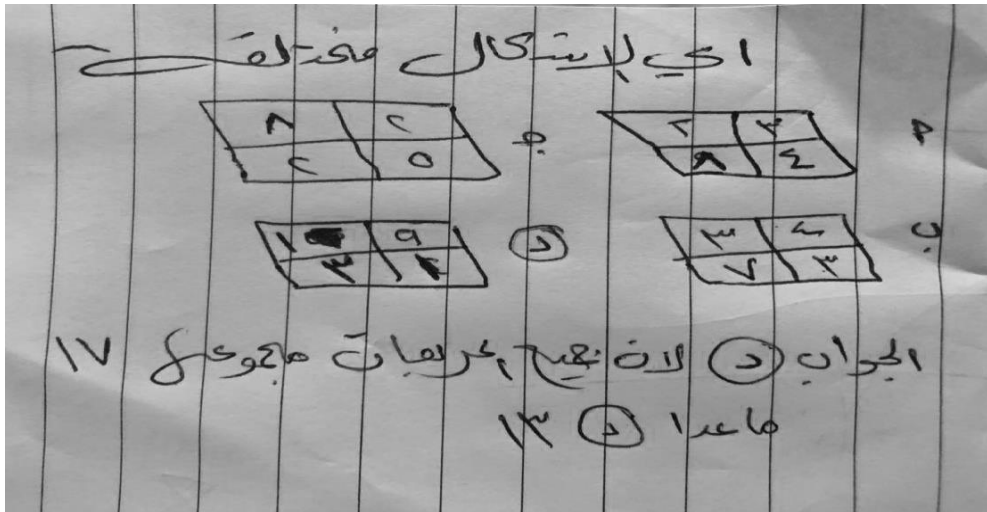 اي الاشكال مختلف
أ ٣ ٢ ج ٢ ٨
٤ ٨ ٥ ٢
ب ٤ ٣ د ٩ ١
٣ ٧ ٣
الجواب د لان جميع المربعات مجموع ١٧
ماعدا د ١٣